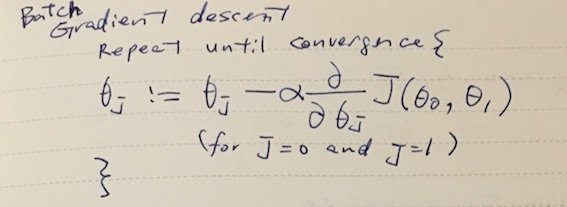 Batch
Gradient descent
Repeat until convergence {
θ_J := θ_J - α ∂/∂θ_J J(θ₀, θ₁)
(for J=0 and J=1)
}